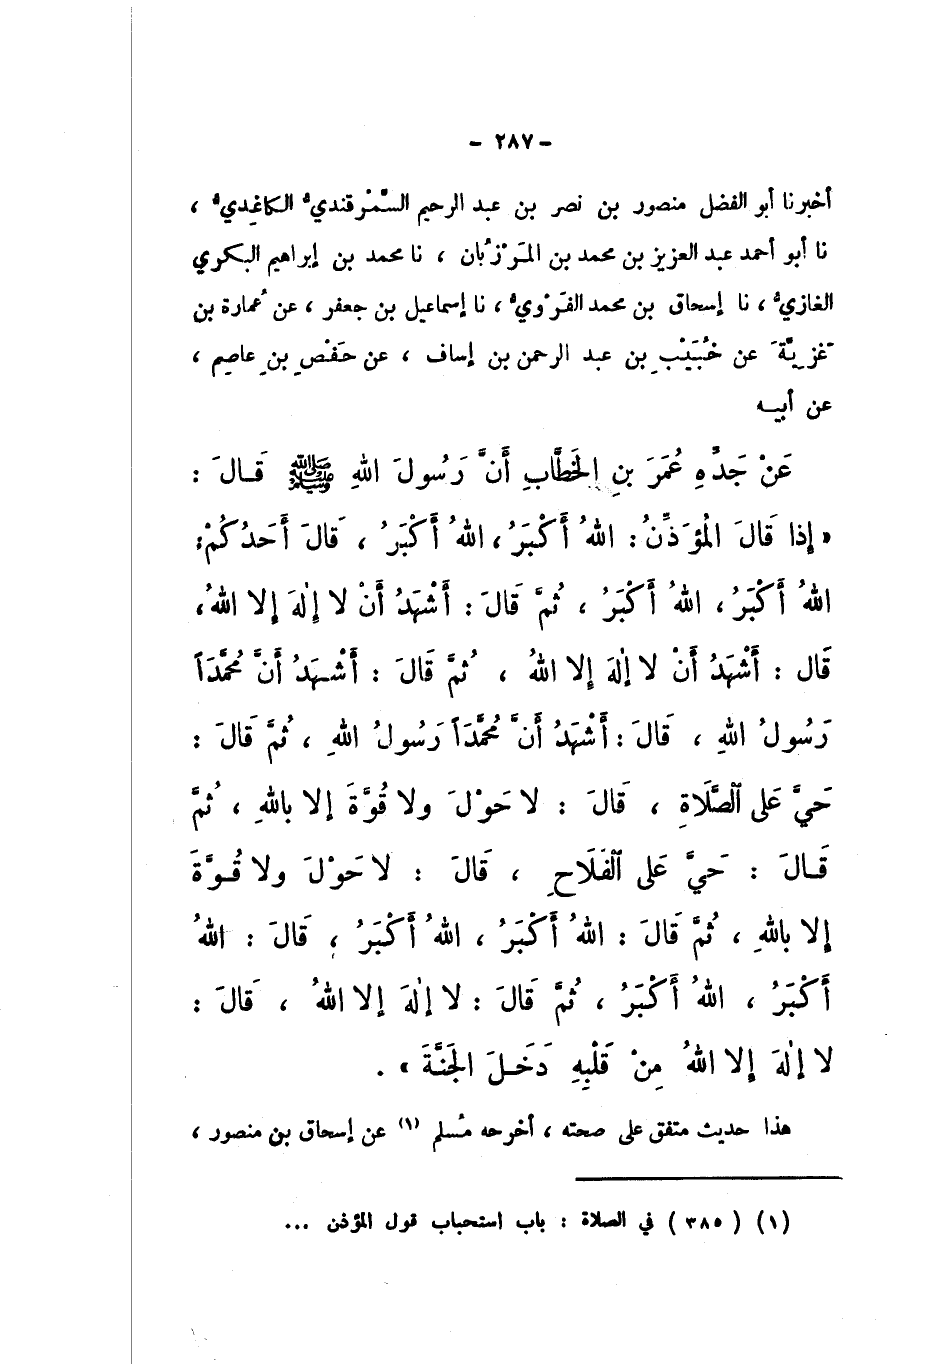 - ٢٨٧ -
أخبرنا أبو الفضل منصور بن نصر بن عبد الرحيم السَّمَرْقنديُّ الكاغِديُّ ،
نا أبو أحمد عبد العزيز بن محمد بن المَرْزُبان ، نا محمد بن إبراهيم البكري
الغازيُّ ، نا إسحاق بن محمد الفَرْويُّ ، نا إسماعيل بن جعفر ، عن عُمارة بن
غَزِيَّةَ عن خُبَيْبِ بن عبد الرحمن بن إساف ، عن حَفْصِ بنِ عاصِم ،
عن أبيه
عَنْ جَدِّهِ عُمَرَ بنِ الخَطَّابِ أَنَّ رَسُولَ اللهِ ﷺ قَالَ :
« إِذا قَالَ المُؤَذِّنُ : اللهُ أَكْبَرُ ، اللهُ أَكْبَرُ ، قَالَ أَحَدُكُمْ :
اللهُ أَكْبَرُ ، اللهُ أَكْبَرُ ، ثُمَّ قَالَ : أَشْهَدُ أَنْ لا إِلٰهَ إِلا اللهُ ،
قَال : أَشْهَدُ أَنْ لا إلٰهَ إِلا اللهُ ، ثُمَّ قَالَ : أَشْهَدُ أَنَّ مُحَمَّدَاً
رَسُولُ اللهِ ، قَالَ : أَشْهَدُ أَنَّ مُحَمَّدَاً رَسُولُ اللهِ ، ثُمَّ قَالَ :
حَيَّ عَلى الصَّلَاةِ ، قَالَ : لا حَوْلَ ولا قُوَّةَ إِلا بِاللهِ ، ثُمَّ
قَالَ : حَيَّ عَلى الفَلَاحِ ، قَالَ : لا حَوْلَ ولا قُوَّةَ
إِلا بِاللهِ ، ثُمَّ قَالَ : اللهُ أَكْبَرُ ، اللهُ أَكْبَرُ ، قَالَ : اللهُ
أَكْبَرُ ، اللهُ أَكْبَرُ ، ثُمَّ قَالَ : لا إِلٰهَ إِلا اللهُ ، قَالَ :
لا إِلٰهَ إِلا اللهُ مِنْ قَلْبِهِ دَخَلَ الجَنَّةَ » .
هذا حديث متفق على صحته ، أخرجه مُسلم (١) عن إسحاق بن منصور ،
(١) (٣٨٥) في الصلاة : باب استحباب قول المؤذن ...